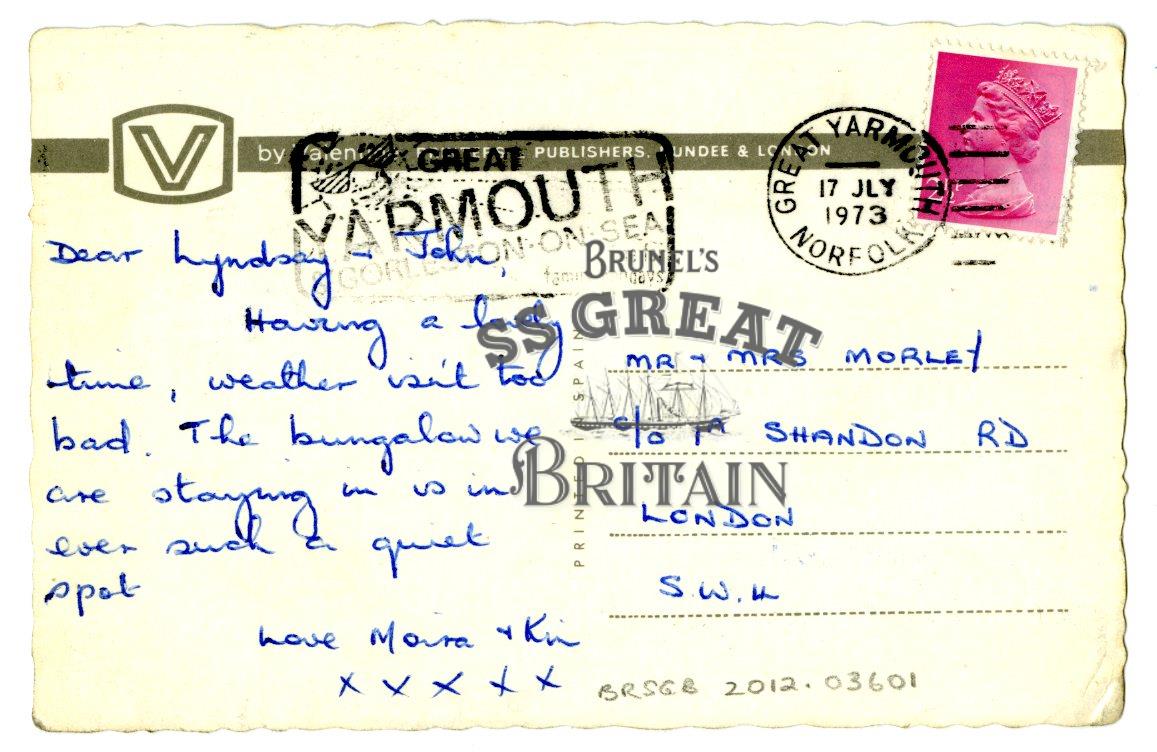 V
by Valentine PUBLISHERS, DUNDEE & LONDON
GREAT
YARMOUTH
& GORLESTON-ON-SEA
GREAT YARMOUTH
17 JLY
1973
NORFOLK
Dear Lyndsay + John,
Having a lovely
time, weather isn't too
bad. The bungalow we
are staying in is in
ever such a quiet
spot
Love Moira + Kim
x x x x x
PRINTED IN SPAIN
MR + MRS MORLEY
c/o 1A SHANDON RD
LONDON
S.W.4
BRSGB 2012.03601
BRUNEL'S
SS GREAT
BRITAIN